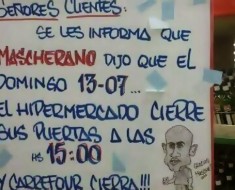 SEÑORES CLIENTES:
SE LES INFORMA QUE
MASCHERANO DIJO QUE EL
DOMINGO 13-07...
EL HIPERMERCADO CIERRE
SUS PUERTAS A LAS
HS 15:00
Y CARREFOUR CIERRA!!!